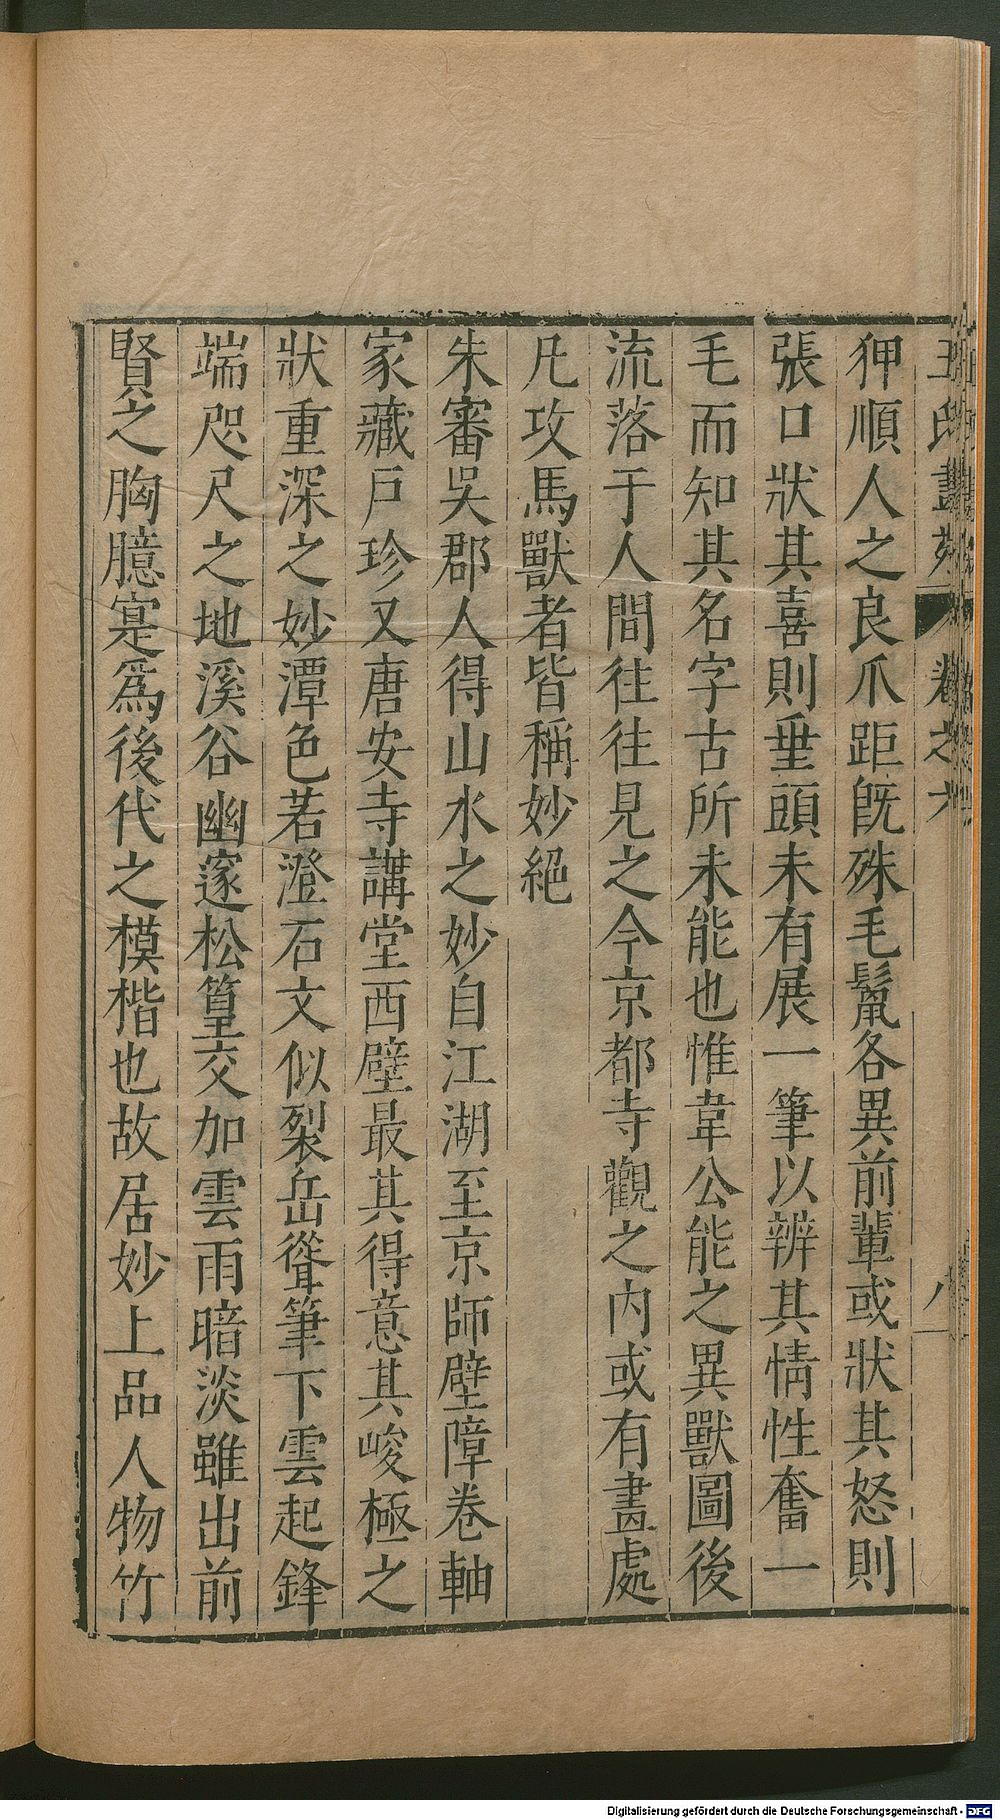 王氏畫苑 卷之六 八
狎順人之良爪距旣殊毛鬣各異前輩或狀其怒則
張口狀其喜則垂頭未有展一筆以辨其情性奮一
毛而知其名字古所未能也惟韋公能之異獸圖後
流落于人間往往見之今京都寺觀之內或有畫處
凡攻馬獸者皆稱妙絕
朱審吳郡人得山水之妙自江湖至京師壁障卷軸
家藏戶珍又唐安寺講堂西壁最其得意其峻極之
狀重深之妙潭色若澄石文似裂岳聳筆下雲起鋒
端咫尺之地溪谷幽邃松篁交加雲雨暗淡雖出前
賢之胸臆寔爲後代之模楷也故居妙上品人物竹
Digitalisierung gefördert durch die Deutsche Forschungsgemeinschaft - DFG